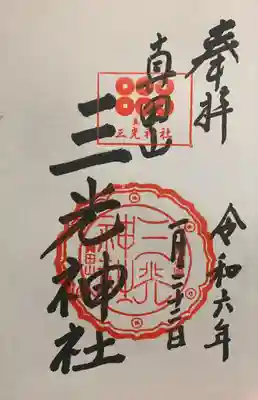 奉拝
令和六年
一月二十二日
真田山
三光神社
三光神社